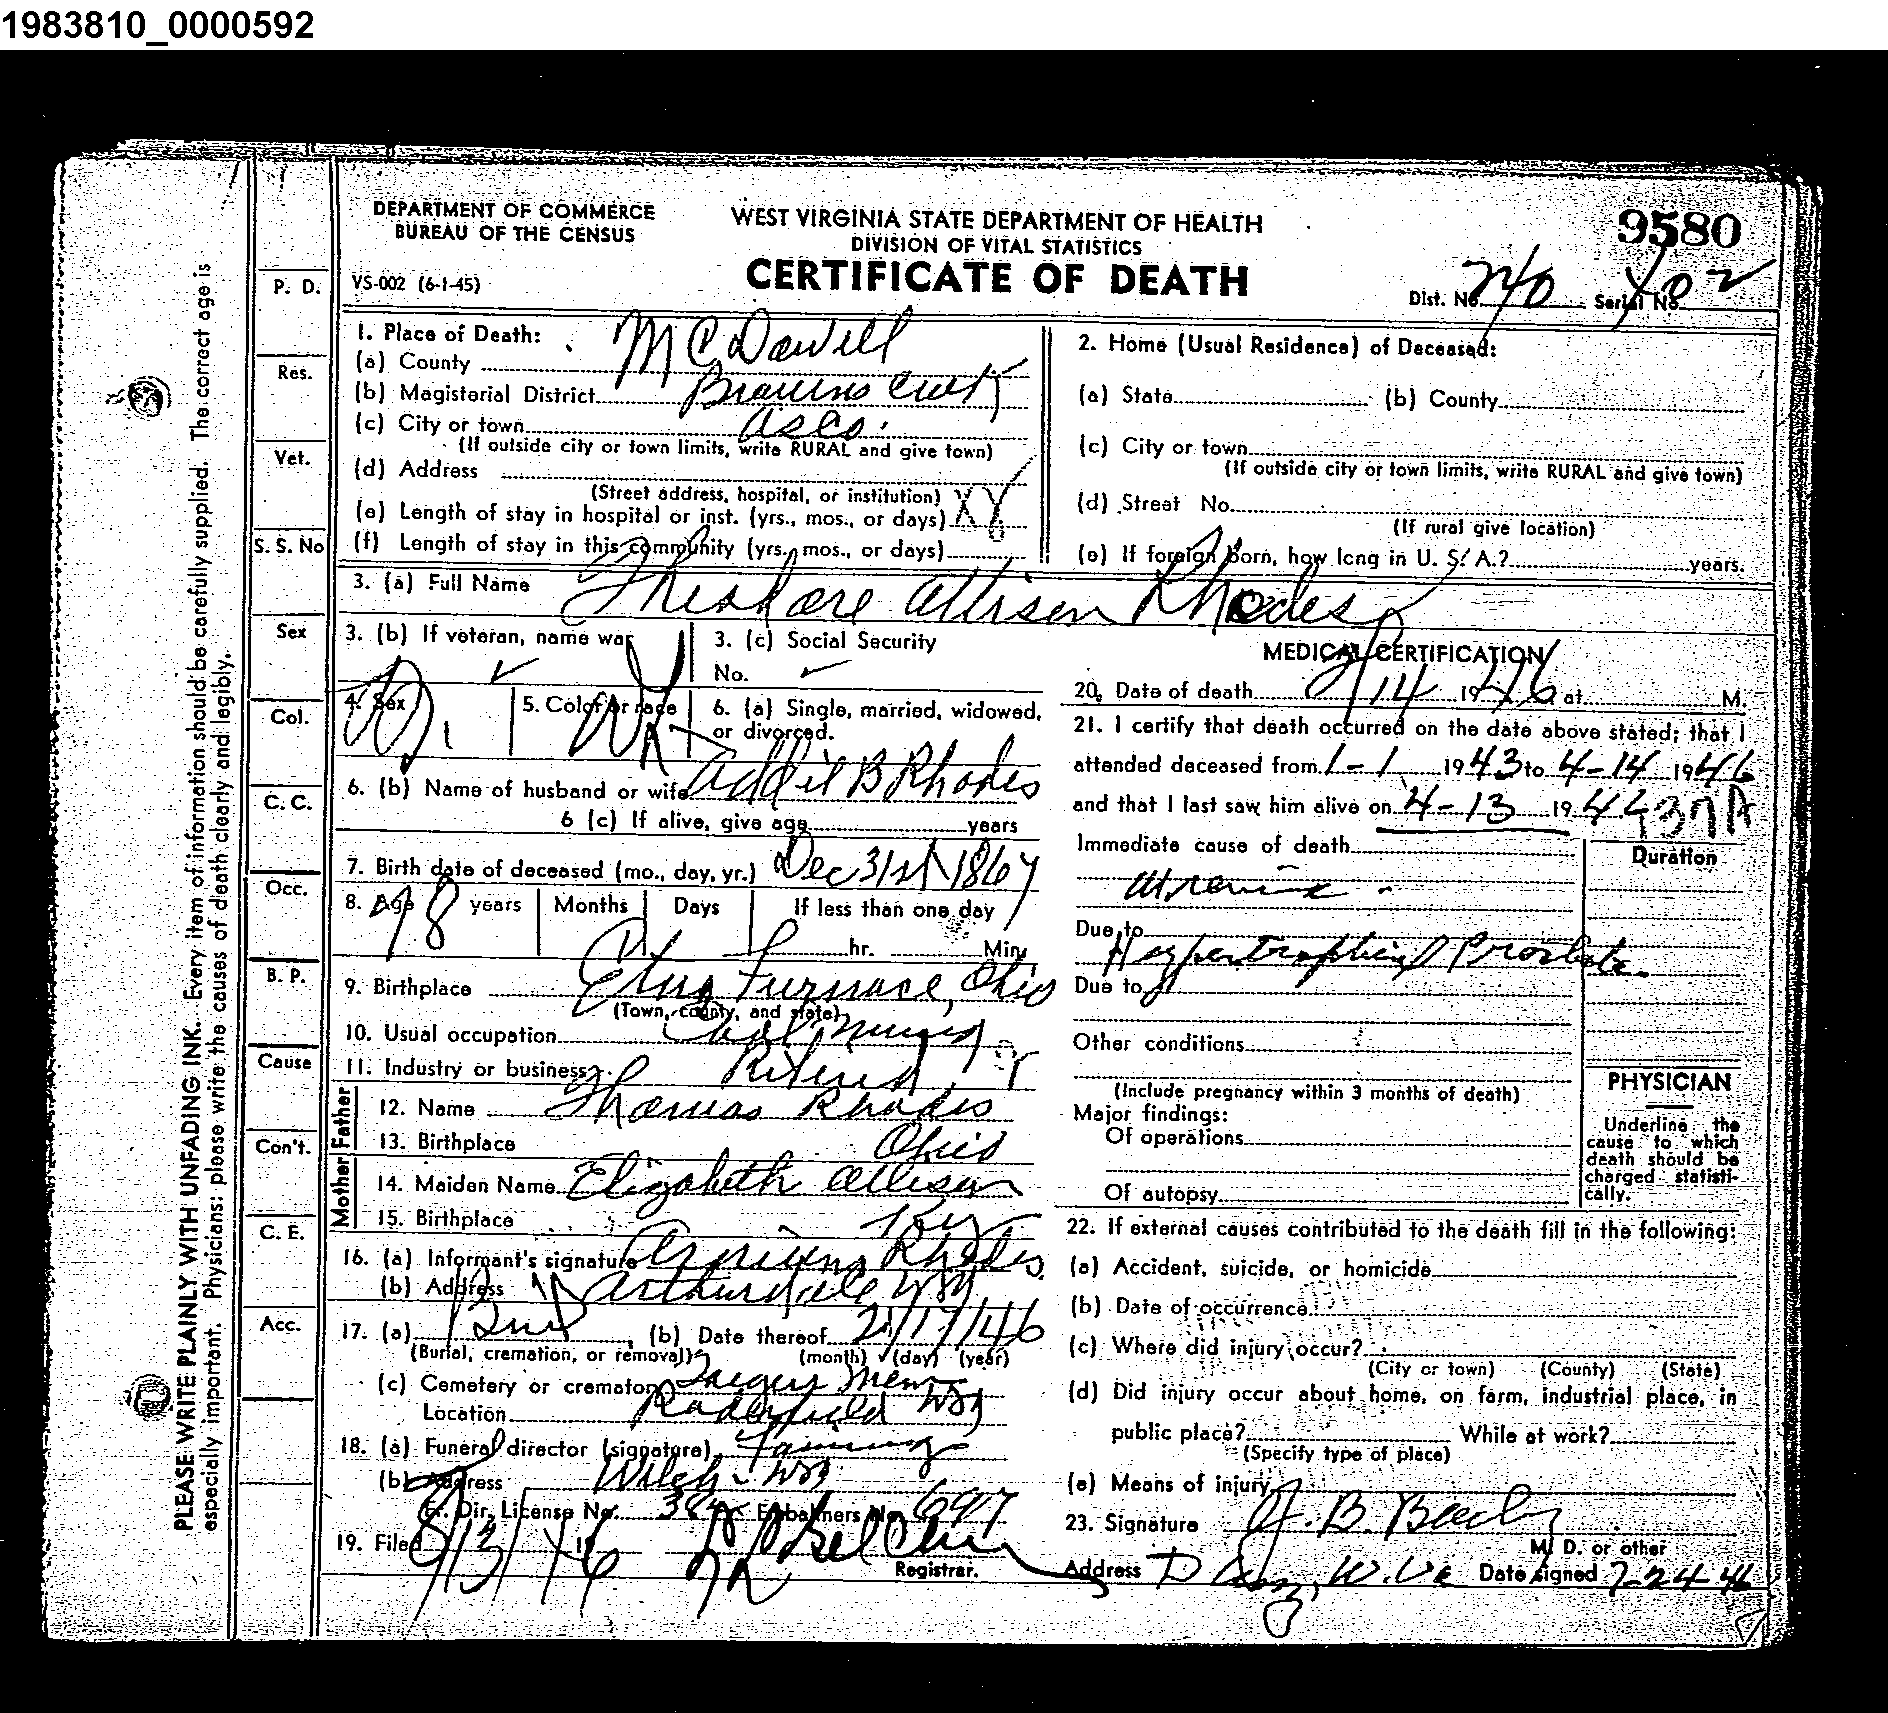 1983810_0000592
DEPARTMENT OF COMMERCE
BUREAU OF THE CENSUS
WEST VIRGINIA STATE DEPARTMENT OF HEALTH
DIVISION OF VITAL STATISTICS
CERTIFICATE OF DEATH
9580
VS-002 (6-1-45)
Dist. No. 240 Serial No. 402
PLEASE WRITE PLAINLY WITH UNFADING INK. Every item of information should be carefully supplied. The correct age is
especially important. Physicians: please write the causes of death clearly and legibly.
P. D.
Res.
Vet.
S. S. No
Sex
Col.
C. C.
Occ.
B. P.
Cause
Con't.
C. E.
Acc.
1. Place of Death:
(a) County McDowell
(b) Magisterial District Browns Creek
(c) City or town Asco.
(If outside city or town limits, write RURAL and give town)
(d) Address
(Street address, hospital, or institution)
(e) Length of stay in hospital or inst. (yrs., mos., or days)
(f) Length of stay in this community (yrs., mos., or days)
2. Home (Usual Residence) of Deceased:
(a) State (b) County
(c) City or town
(If outside city or town limits, write RURAL and give town)
(d) Street No.
(If rural give location)
(e) If foreign born, how long in U. S. A.? years.
3. (a) Full Name Theodore Allison Rhodes
3. (b) If veteran, name war
3. (c) Social Security
No.
4. Sex M.
5. Color or race W
6. (a) Single, married, widowed,
or divorced.
6. (b) Name of husband or wife Addie B Rhodes
6 (c) If alive, give age years
7. Birth date of deceased (mo., day, yr.) Dec 31st 1867
8. Age 78 years Months Days If less than one day
hr. Min.
9. Birthplace Etna Furnace, Ohio
(Town, county, and state)
10. Usual occupation Coal Mining
11. Industry or business Retired
Father
12. Name Thomas Rhodes
13. Birthplace Ohio
Mother
14. Maiden Name Elizabeth Allison
15. Birthplace Ky
16. (a) Informant's signature Rhodes
(b) Address Arthurdale WVa
17. (a) Bur (b) Date thereof /17/46
(Burial, cremation, or removal) (month) (day) (year)
(c) Cemetery or crematory Iaeger Mem
Location Roderfield WVa
18. (a) Funeral director (signature) Fanning
(b) Address Welch WVa
F. Dir. License No. 384 Embalmers No. 697
19. Filed 8/13/ 19 46
Registrar.
MEDICAL CERTIFICATION
20. Date of death /14 1946 at M.
21. I certify that death occurred on the date above stated; that I
attended deceased from 1-1 1943 to 4-14 1946
and that I last saw him alive on 4-13 19 46 137A
Immediate cause of death
Uremia
Duration
Due to
Hypertrophied Prostate
Due to
Other conditions
(Include pregnancy within 3 months of death)
Major findings:
Of operations
Of autopsy
PHYSICIAN
Underline the
cause to which
death should be
charged statisti-
cally.
22. If external causes contributed to the death fill in the following:
(a) Accident, suicide, or homicide
(b) Date of occurrence
(c) Where did injury occur?
(City or town) (County) (State)
(d) Did injury occur about home, on farm, industrial place, in
public place? While at work?
(Specify type of place)
(e) Means of injury
23. Signature J. B.
M. D. or other
Address W. Va Date signed 7-24-46